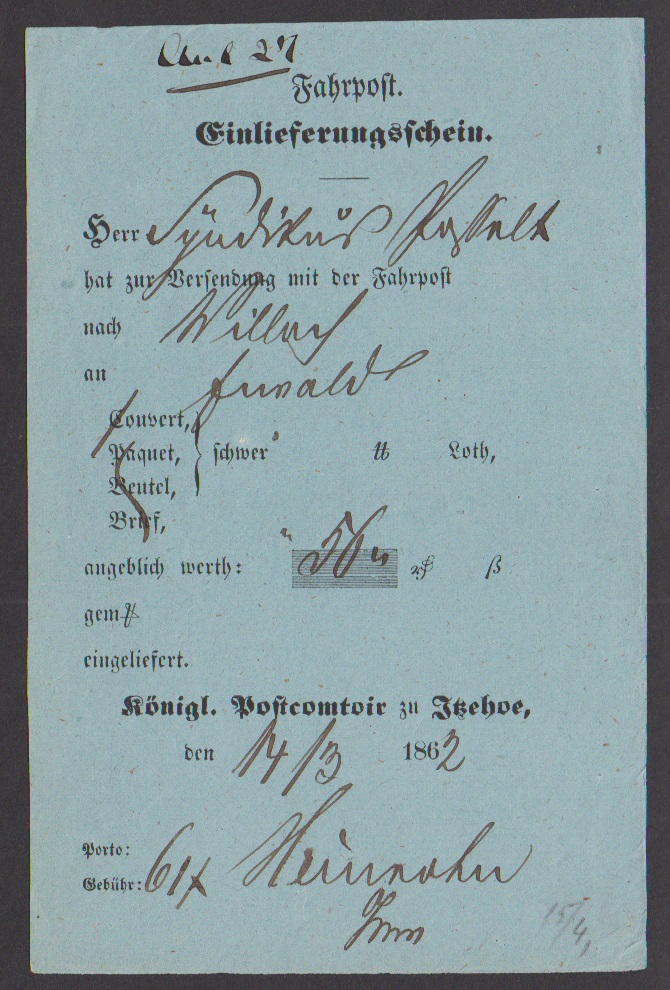 27
Fahrpost.
Einlieferungsschein.
Herr Syndikus Posselt
hat zur Versendung mit der Fahrpost
nach Willach
an Ewald
Couvert,
Paquet, schwer ℔ Loth,
Beutel,
Brief,
angeblich werth: 50 ß
gem
eingeliefert.
Königl. Postcomtoir zu Itzehoe,
den 14/3 1862
Porto:
Gebühr: 6
15/4,